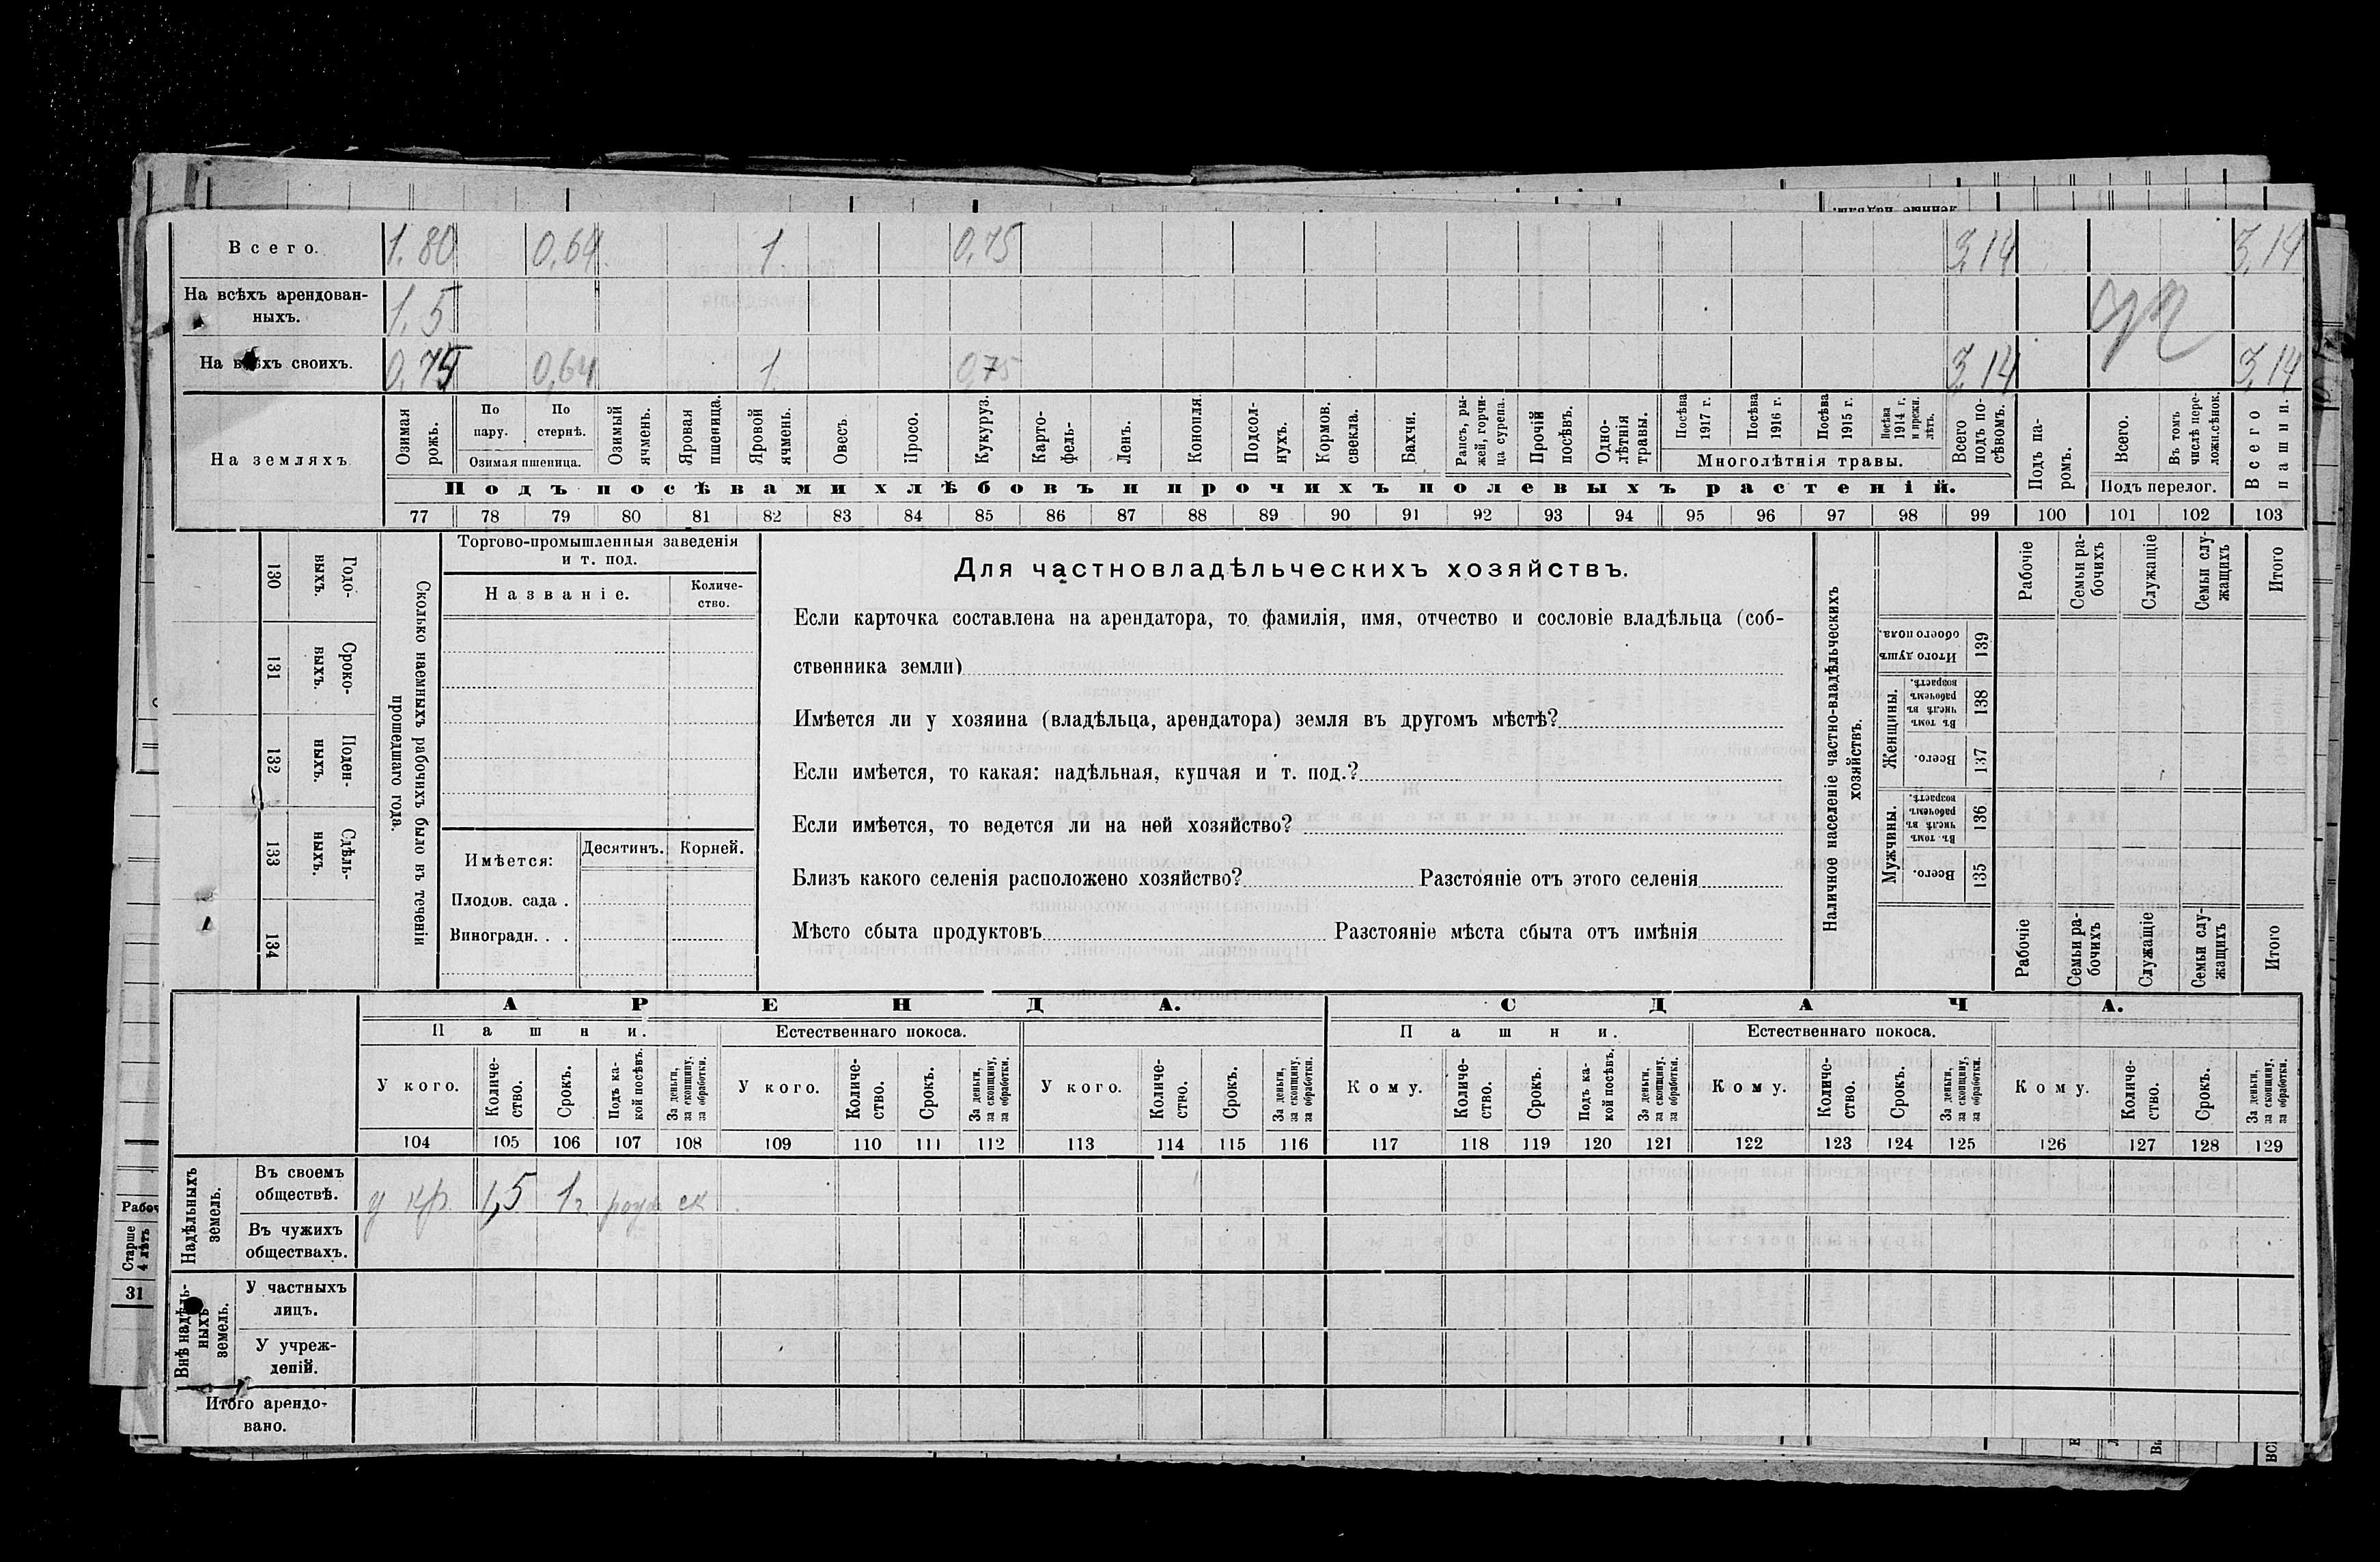 Всего. 1.80 0,64 1 0,75 3,14 3,14
На всѣхъ арендован-
ныхъ. 1.5
На всѣхъ своихъ. 0,75 0,64 1 0,75 3,14 3,14
На земляхъ
Озимая рожь.
По пару.
По стернѣ.
Озимая пшеница.
Озимый ячмень.
Яровая пшеница.
Яровой ячмень.
Овесъ.
Просо.
Кукуруз.
Карто-
фель-
Ленъ.
Конопля.
Подсол-
нухъ.
Кормов.
свекла.
Бахчи.
Рапсъ, ры-
жей, горчи-
ца сурепа.
Прочій
посѣвъ.
Одно-
лѣтнія
травы.
Посѣва
1917 г.
Посѣва
1916 г.
Посѣва
1915 г.
Посѣва
1914 г.
и прежн.
лѣтъ.
Многолѣтнія травы.
Всего
подъ по-
сѣвомъ.
Подъ па-
ромъ.
Всего.
Въ томъ
числѣ пере-
ложн.сѣнок.
Подъ перелог.
Всего
пашни.
Подъ посѣвами хлѣбовъ и прочихъ полевыхъ растеній.
77 78 79 80 81 82 83 84 85 86 87 88 89 90 91 92 93 94 95 96 97 98 99 100 101 102 103
130 Годо-
выхъ.
131 Сроко-
выхъ.
132 Поден-
ныхъ.
133 Сдѣль-
ныхъ.
134
Сколько наемныхъ рабочихъ было въ теченіи
прошедшаго года.
Торгово-промышленныя заведенія
и т. под.
Названіе.
Количе-
ство.
Имѣется:
Десятинъ. Корней.
Плодов. сада .
Виноградн. . .
Для частновладѣльческихъ хозяйствъ.
Если карточка составлена на арендатора, то фамилія, имя, отчество и сословіе владѣльца (соб-
ственника земли)
Имѣется ли у хозяина (владѣльца, арендатора) земля въ другомъ мѣстѣ?
Если имѣется, то какая: надѣльная, купчая и т. под.?
Если имѣется, то ведется ли на ней хозяйство?
Близъ какого селенія расположено хозяйство? Разстояніе отъ этого селенія
Мѣсто сбыта продуктовъ Разстояніе мѣста сбыта отъ имѣнія
Наличное населеніе частно-владѣльческихъ
хозяйствъ.
Рабочіе
Семьи ра-
бочихъ
Служащіе
Семьи слу-
жащихъ
Итого
Итого душъ
обоего пола.
139
Женщины.
Въ томъ
числѣ въ
рабочемъ
возрастѣ.
138
Всего.
137
Мужчины.
Въ томъ
числѣ въ
рабочемъ
возрастѣ.
136
Всего.
135
Рабочіе
Семьи ра-
бочихъ
Служащіе
Семьи слу-
жащихъ
Итого
АРЕНДА. СДАЧА.
Пашни. Естественнаго покоса. Пашни. Естественнаго покоса.
У кого.
Количе-
ство.
Срокъ.
Подъ ка-
кой посѣвъ.
За деньги,
за скопщину,
за обработки.
У кого.
Количе-
ство.
Срокъ.
За деньги,
за скопщину,
за обработки.
У кого.
Количе-
ство.
Срокъ.
За деньги,
за скопщину,
за обработки.
Кому.
Количе-
ство.
Срокъ.
Подъ ка-
кой посѣвъ.
За деньги,
за скопщину,
за обработки.
Кому.
Количе-
ство.
Срокъ.
За деньги,
за скопщину,
за обработки.
Кому.
Количе-
ство.
Срокъ.
За деньги,
за скопщину,
за обработки.
104 105 106 107 108 109 110 111 112 113 114 115 116 117 118 119 120 121 122 123 124 125 126 127 128 129
Надѣльныхъ
земель.
Въ своемъ
обществѣ. у кр. 1,5 1г ск
Въ чужихъ
обществахъ.
Внѣ надѣль-
ныхъ
земель.
У частныхъ
лицъ.
У учреж-
деній.
Итого арендо-
вано.
Старше
4 лѣтъ
31